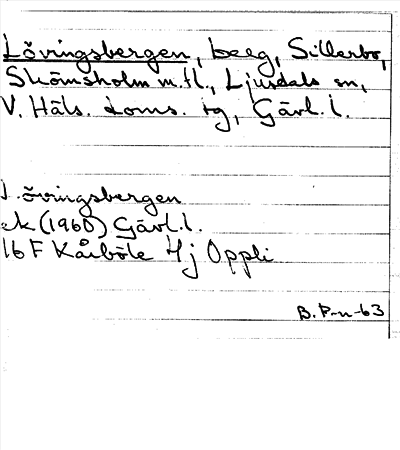 Lövringsbergen, berg, Sillerbo,
Skönsholm m.fl., Ljusdals sn,
V. Häls. doms. tg, Gävl.l.
Lövringsbergen
ek (1960) Gävl.l.
16 F Kårböle Hj Oppli
B. P-n-63